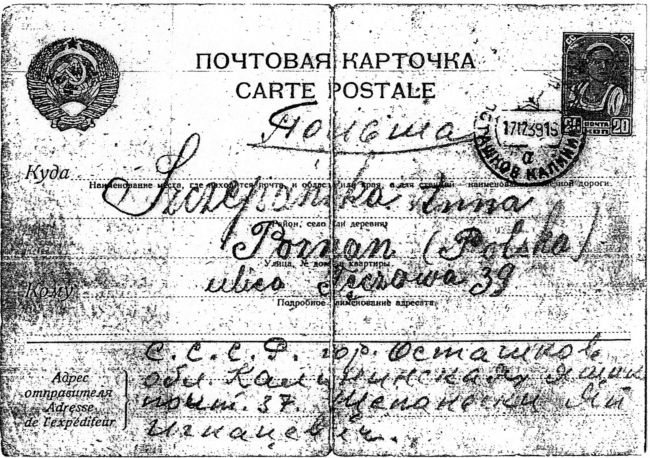 ПОЧТОВАЯ КАРТОЧКА
CARTE POSTALE
ПОЧТА
20
КОП
17 12 39 15
ОСТАШКОВ КАЛИНИН
а
Куда
Наименование места, где находится почта, и области или края, а для станций наименование железной дороги.
Szczepańska Anna
Район, село или деревня
Poznań (Polska)
Улица, № дома и квартиры
ulica 39
Кому
Подробное наименование адресата
С.С.С.Р. гор. Осташков
Адрес
отправителя
Adresse
de l'expéditeur
обл. Калининская ящик
почт. 37. Щепаньски Ян
Игнацевич.